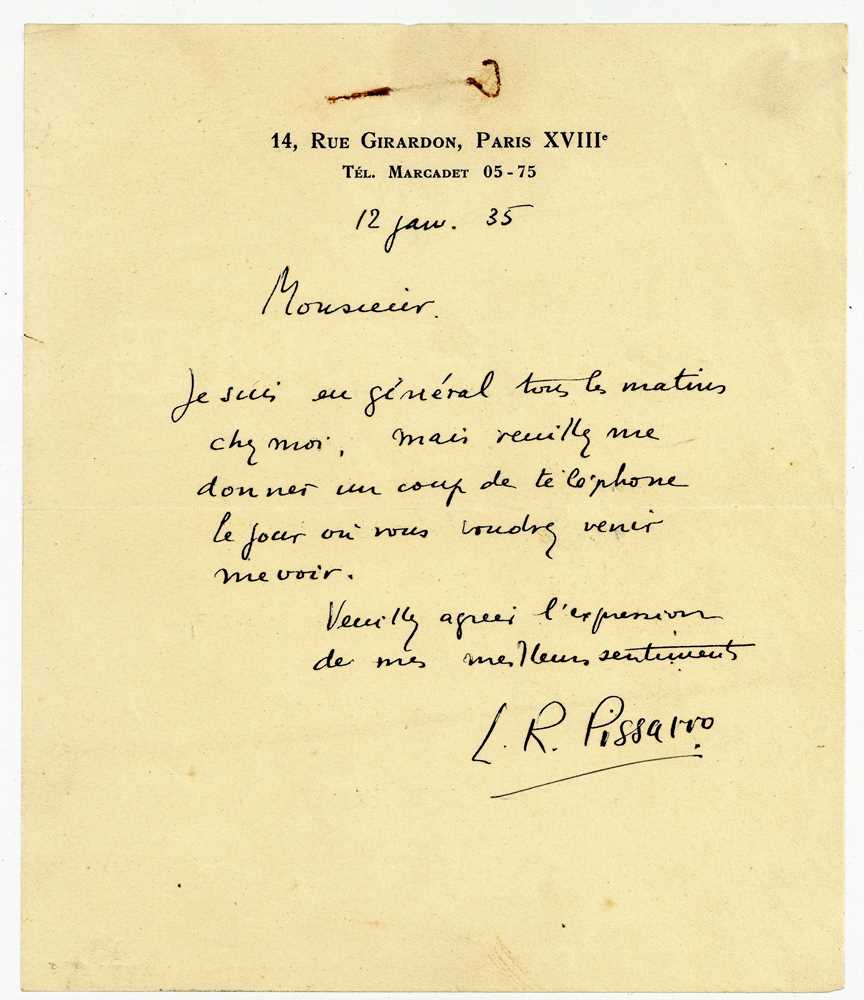 14, Rue Girardon, Paris XVIIIe
Tél. Marcadet 05-75
12 janv. 35
Monsieur.
Je suis en général tous les matins
chez moi, mais veuillez me
donner un coup de téléphone
le jour où vous voudrez venir
me voir.
Veuillez agréer l'expression
de mes meilleurs sentiments
L. R. Pissarro